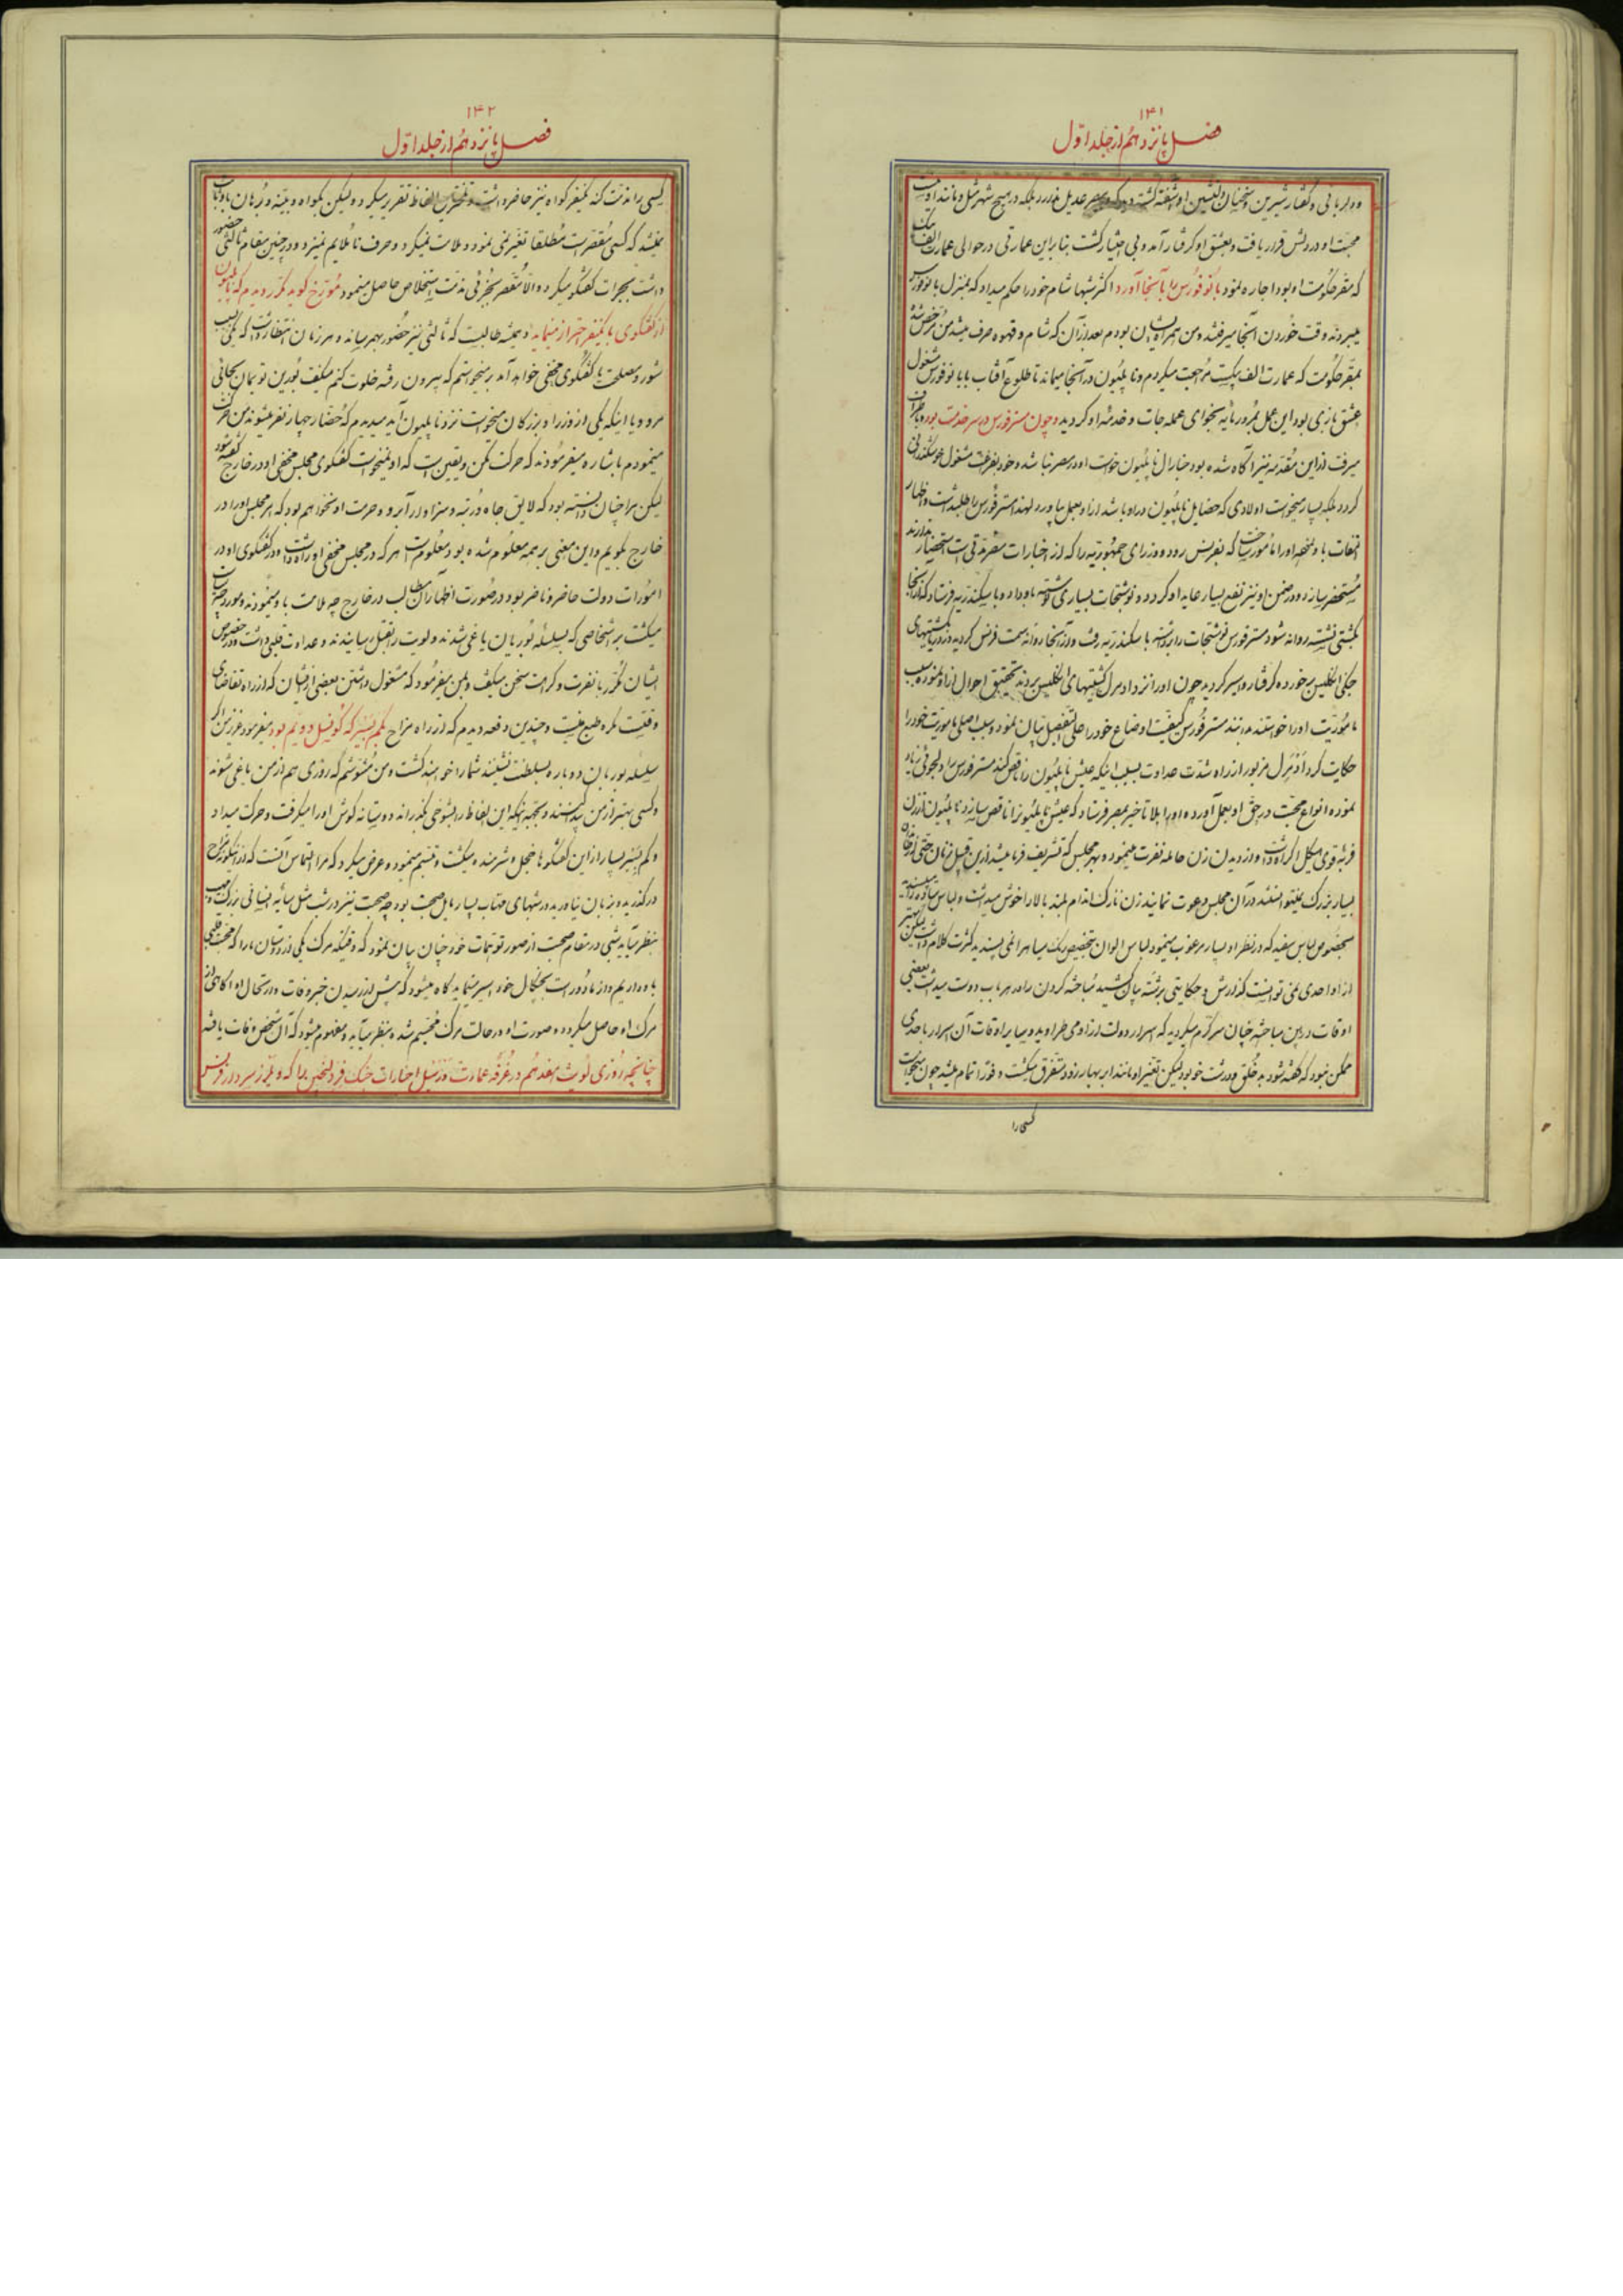 ۱۴۱
فصل پانزدهم از جلد اول
و دلربائی و گفتار شیرین و سخنان دلنشین او شیفته گشته دید که در مصر عدیل ندارد بلکه در هیچ شهر مثل و مانند او نیست
محبت او در دلش قرار یافت و بعشق او گرفتار آمد و بی اختیار گشت بنابراین عمارتی در حوالی عمارت الف بیک
که مقر حکومت او بود اجاره نمود بانو فورس را بآنجا آورد اکثر شبها شام خود را حکم میداد که بمنزل بانو فورس
میبردند وقت خوردن آنجا میرفتند و من همراه ایشان بودم بعد از آن که شام و قهوه صرف میشد من مرخص شده
بمقر حکومت که عمارت الف بیک است مراجعت میکردم و ناپلیون در آنجا میماند تا طلوع آفتاب با بانو فورس مشغول
عشق بازی بود این عمل بمرور مایه نجوای عمله جات و خدمه او گردید و چون مستر فورس در سر خدمت بود
میرفت از این مقدمه نیز آگاه شده بود جنارال ناپلیون خواست او در مصر نباشد و خود بفراغت مشغول خوشگذرانی
گردد بلکه بسیار میخواست اولادی که خصایل ناپلیون در او باشد از او بعمل بیاورد لهذا مستر فورس را طلب داشت و اظهار
التفات باو نموده او را مأمور ساخت که بفرنس رود و وزرای جمهوریه را که از اخبارات مصر مدتی است استحضار ندارند
مستحضر سازد و در ضمن او نیز نفع بسیار عاید او گردد و نوشتجات بسیاری نوشته باو داد و باسکندریه فرستاد که از آنجا
بکشتی نشسته روانه شود مستر فورس نوشتجات را برداشته باسکندریه رفت و از آنجا روانه سمت فرنس گردید در دریا بکشتیهای
جنگی انگلیس برخورده گرفتار و اسیر گردید چون او را نزد ادمیرال کشتیهای انگلیس بردند تحقیق احوال از او نموده سبب
مأموریت او را خواستند بدانند مستر فورس کیفیت اوضاع خود را علی التفصیل بیان نمود و سبب اصلی مأموریت خود را
حکایت کرد ادمیرال مزبور از راه شدت عداوت بسبب اینکه عیش ناپلیون را ناقص کند مستر فورس را دلجوئی زیاد
نموده انواع محبت در حق او بعمل آورده او را بلاتأخیر بمصر فرستاد که عیش ناپلیون را ناقص سازد ناپلیون از زن
فربه قوی هیکل اکراه داشت و از دیدن زن حامله نفرت مینمود و بهر مجلس که تشریف فرما میشد از این قبیل زنان حتی
بسیار بزرگ نمیتوانستند در آن مجلس دعوت نمایند زن نازک اندام بلند بالا را خوش میداشت و لباس
بخصوص لباس سفید که در نظر او بسیار مرغوب مینمود لباس الوان بتخصیص رنگ سیاه را نمی پسندید کثرت کلام
از او احدی نمی توانست گذارش و حکایتی برشته بیان کشد مباحثه کردن را در هر باب دوست میداشت بعضی
اوقات در بین مباحثه چنان سرگرم میگردید که اسرار دولت از او می طراوید و سایر اوقات آن اسرار با احدی
ممکن نبود که گفته شود بد خلق و درشت خو بود لیکن تغیر او مانند ابر بهار زود متفرق میگشت و فورا تمام میشد چون میخواست
کسی را
۱۴۲
فصل پانزدهم از جلد اول
یخشید که کسی مقصر است مطلقا تغیر نمی نمود و ملامت نمیکرد و حرف ناملایم نمیزد و در چنین مقام ثالثی حضور
داشت بجرات گفتگو میکرد مورخ گوید مکرر دیدم که ناپلیون
از گفتگوی با یکنفر احتراز مینماید و همیشه طالبست که ثالثی نیز حضور بهم رساند
شور و مصلحت یا گفتگوی مخفی خواهد آمد میخواستم که بیرون رفته خلوت کنم میگفت بورین تو بمان بجائی
مرو و یا اینکه یکی از وزرا و بزرگان میخواست نزد ناپلیون آید میدیدم که حضار چهار نفر میشوند من حرکت
مینمودم باشاره میفرمودند که حرکت مکن و یقین است که او نمیخواست گفتگوی مجلس مخفی او در خارج گفته شود
لیکن مرا چنان دانسته بود که لایق جاه و رتبه و سزاوار آبرو و حرمت او نخواهم بود که سر مجلس او را در
خارج بگویم و این معنی بر همه معلوم شده بود و معلوم است هر که در مجلس مخفی او راه داشت و در گفتگوی او در
امورات دولت حاضر و ناظر بود در صورت اظهار آن مطالب در خارج چه ملامت باو مینمودند
میگشت بر اشخاصی که بسلسله بوربان یاغی شدند و لویت را بقتل رسانیدند و عداوت قلبی داشت و در خصوص
ایشان مکرر با نفرت و کراهت سخن میگفت و بمن میفرمود که مشغول داشتن بعضی از ایشان که از راه تقاضای
وقتیست نه طبع نیست و چندین دفعه دیدم که از راه مزاح بکم بسیر که کونسل دویم بود میفرمود عزیز من اگر
سلسله بوربان دوباره بسلطنت نشینند شما را خواهند کشت و من مشوشم که روزی هم از من یاغی شوند
و کسی بهتر از من پیدا کنند و بجهة اینکه این الفاظ را بشوخی بگذراند دوستانه گوش او را میگرفت و حرکت میداد
و کم بسیر بسیار از این گفتگوها خجل و شرمنده میگشت و تبسم مینمود و عرض میکرد که مرا التماس آنست که از اینگونه مزاح
در گذرید و بزبان نیاورید در شبهای مهتاب بسیار مایل صحبت بود چه صحبت نیز در شب مثل سایه انسانی بزرگ
بنظر میآید شبی در مقام صحبت از صور توهمات خود چنان بیان نمود که وقتیکه مرگ یکی از دوستان ما را که محبت قلبی
باو داریم و از ما دور است بخیال خود اسیر مینماید گاه میشود که پیش از رسیدن خبر وفات و ارتحال او آگاهی از
مرگ او حاصل میگردد و صورت او در حالت مرگ مجسم شده بنظر میآید و معلوم میشود که آن شخص وفات یافته
چنانچه روزی لویت هفدهم در غرفه عمارت اخبارات جنگ سردار فرنس